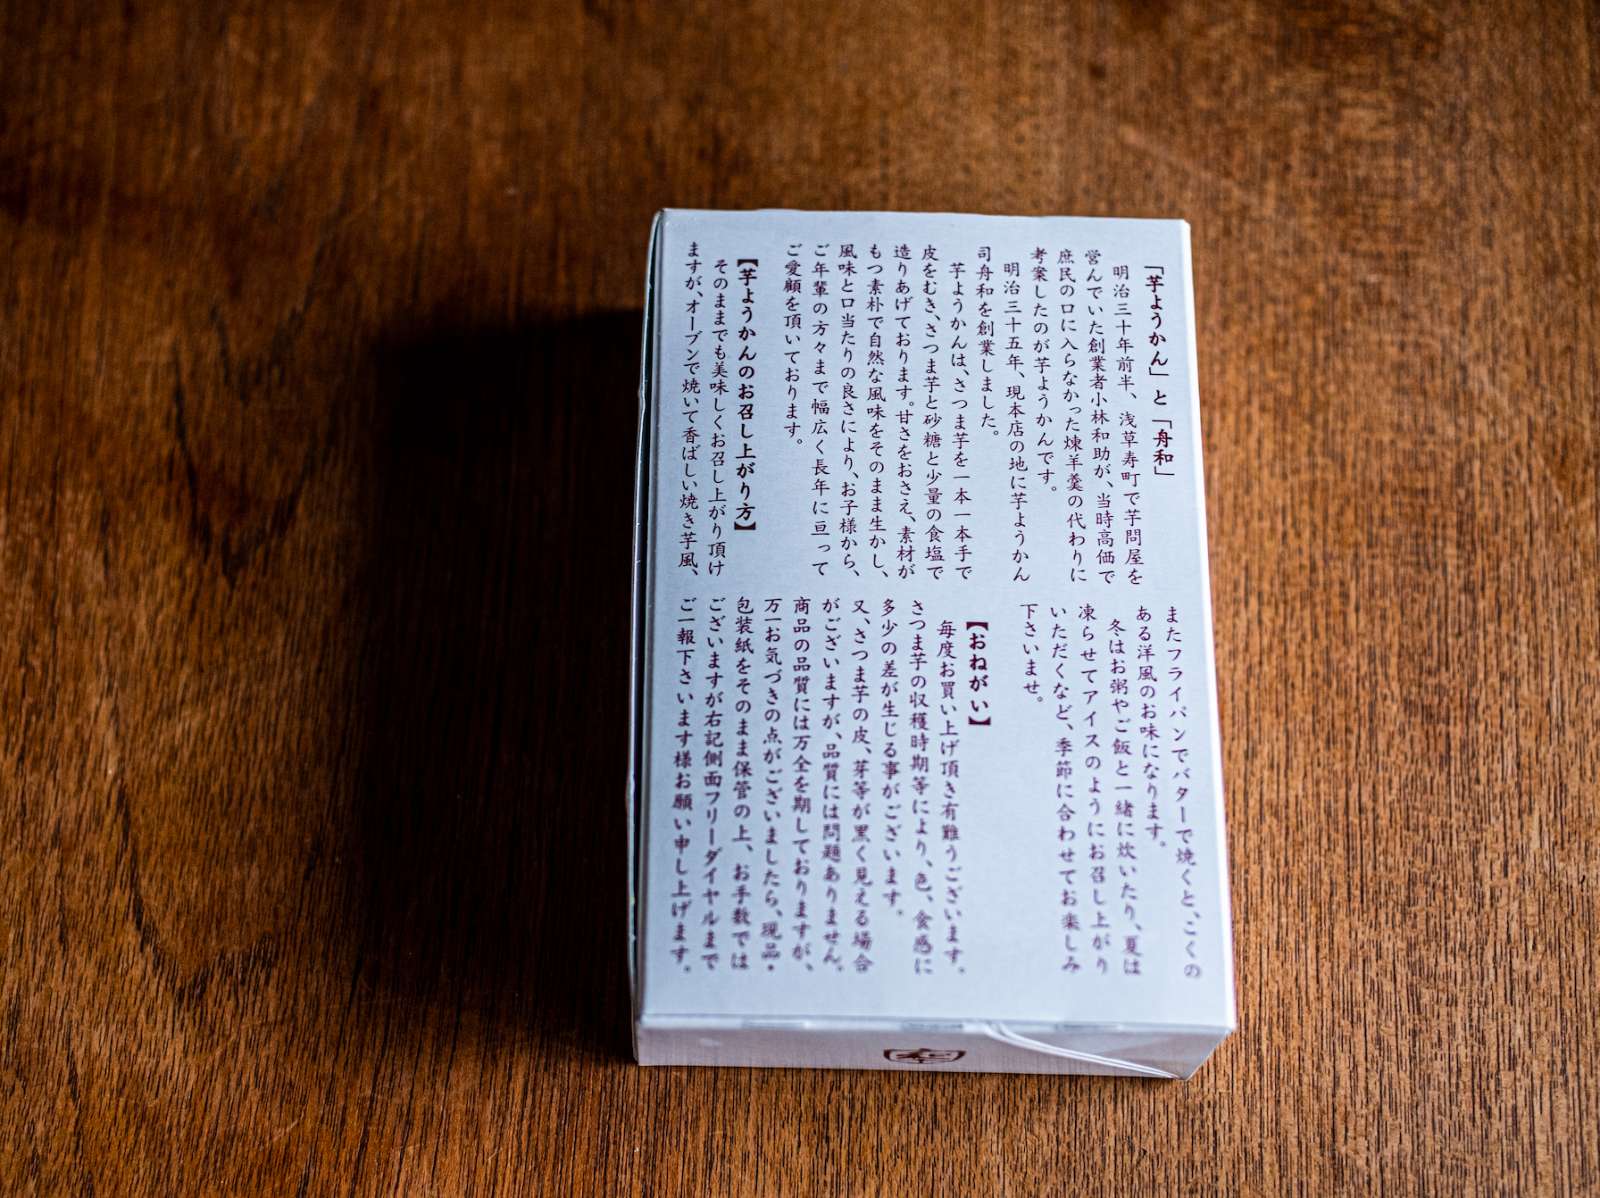 「芋ようかん」と「舟和」
明治三十年前半、浅草寿町で芋問屋を
営んでいた創業者小林和助が、当時高価で
庶民の口に入らなかった煉羊羹の代わりに
考案したのが芋ようかんです。
明治三十五年、現本店の地に芋ようかん
司舟和を創業しました。
芋ようかんは、さつま芋を一本一本手で
皮をむき、さつま芋と砂糖と少量の食塩で
造りあげております。甘さをおさえ、素材が
もつ素朴で自然な風味をそのまま生かし、
風味と口当たりの良さにより、お子様から、
ご年輩の方々まで幅広く長年に亘って
ご愛顧を頂いております。
【芋ようかんのお召し上がり方】
そのままでも美味しくお召し上がり頂け
ますが、オーブンで焼いて香ばしい焼き芋風、
またフライパンでバターで焼くと、こくの
ある洋風のお味になります。
冬はお粥やご飯と一緒に炊いたり、夏は
凍らせてアイスのようにお召し上がり
いただくなど、季節に合わせてお楽しみ
下さいませ。
【おねがい】
毎度お買い上げ頂き有難うございます。
さつま芋の収穫時期等により、色、食感に
多少の差が生じる事がございます。
又、さつま芋の皮、芽等が黒く見える場合
がございますが、品質には問題ありません。
商品の品質には万全を期しておりますが、
万一お気づきの点がございましたら、現品・
包装紙をそのまま保管の上、お手数では
ございますが右記側面フリーダイヤルまで
ご一報下さいます様お願い申し上げます。